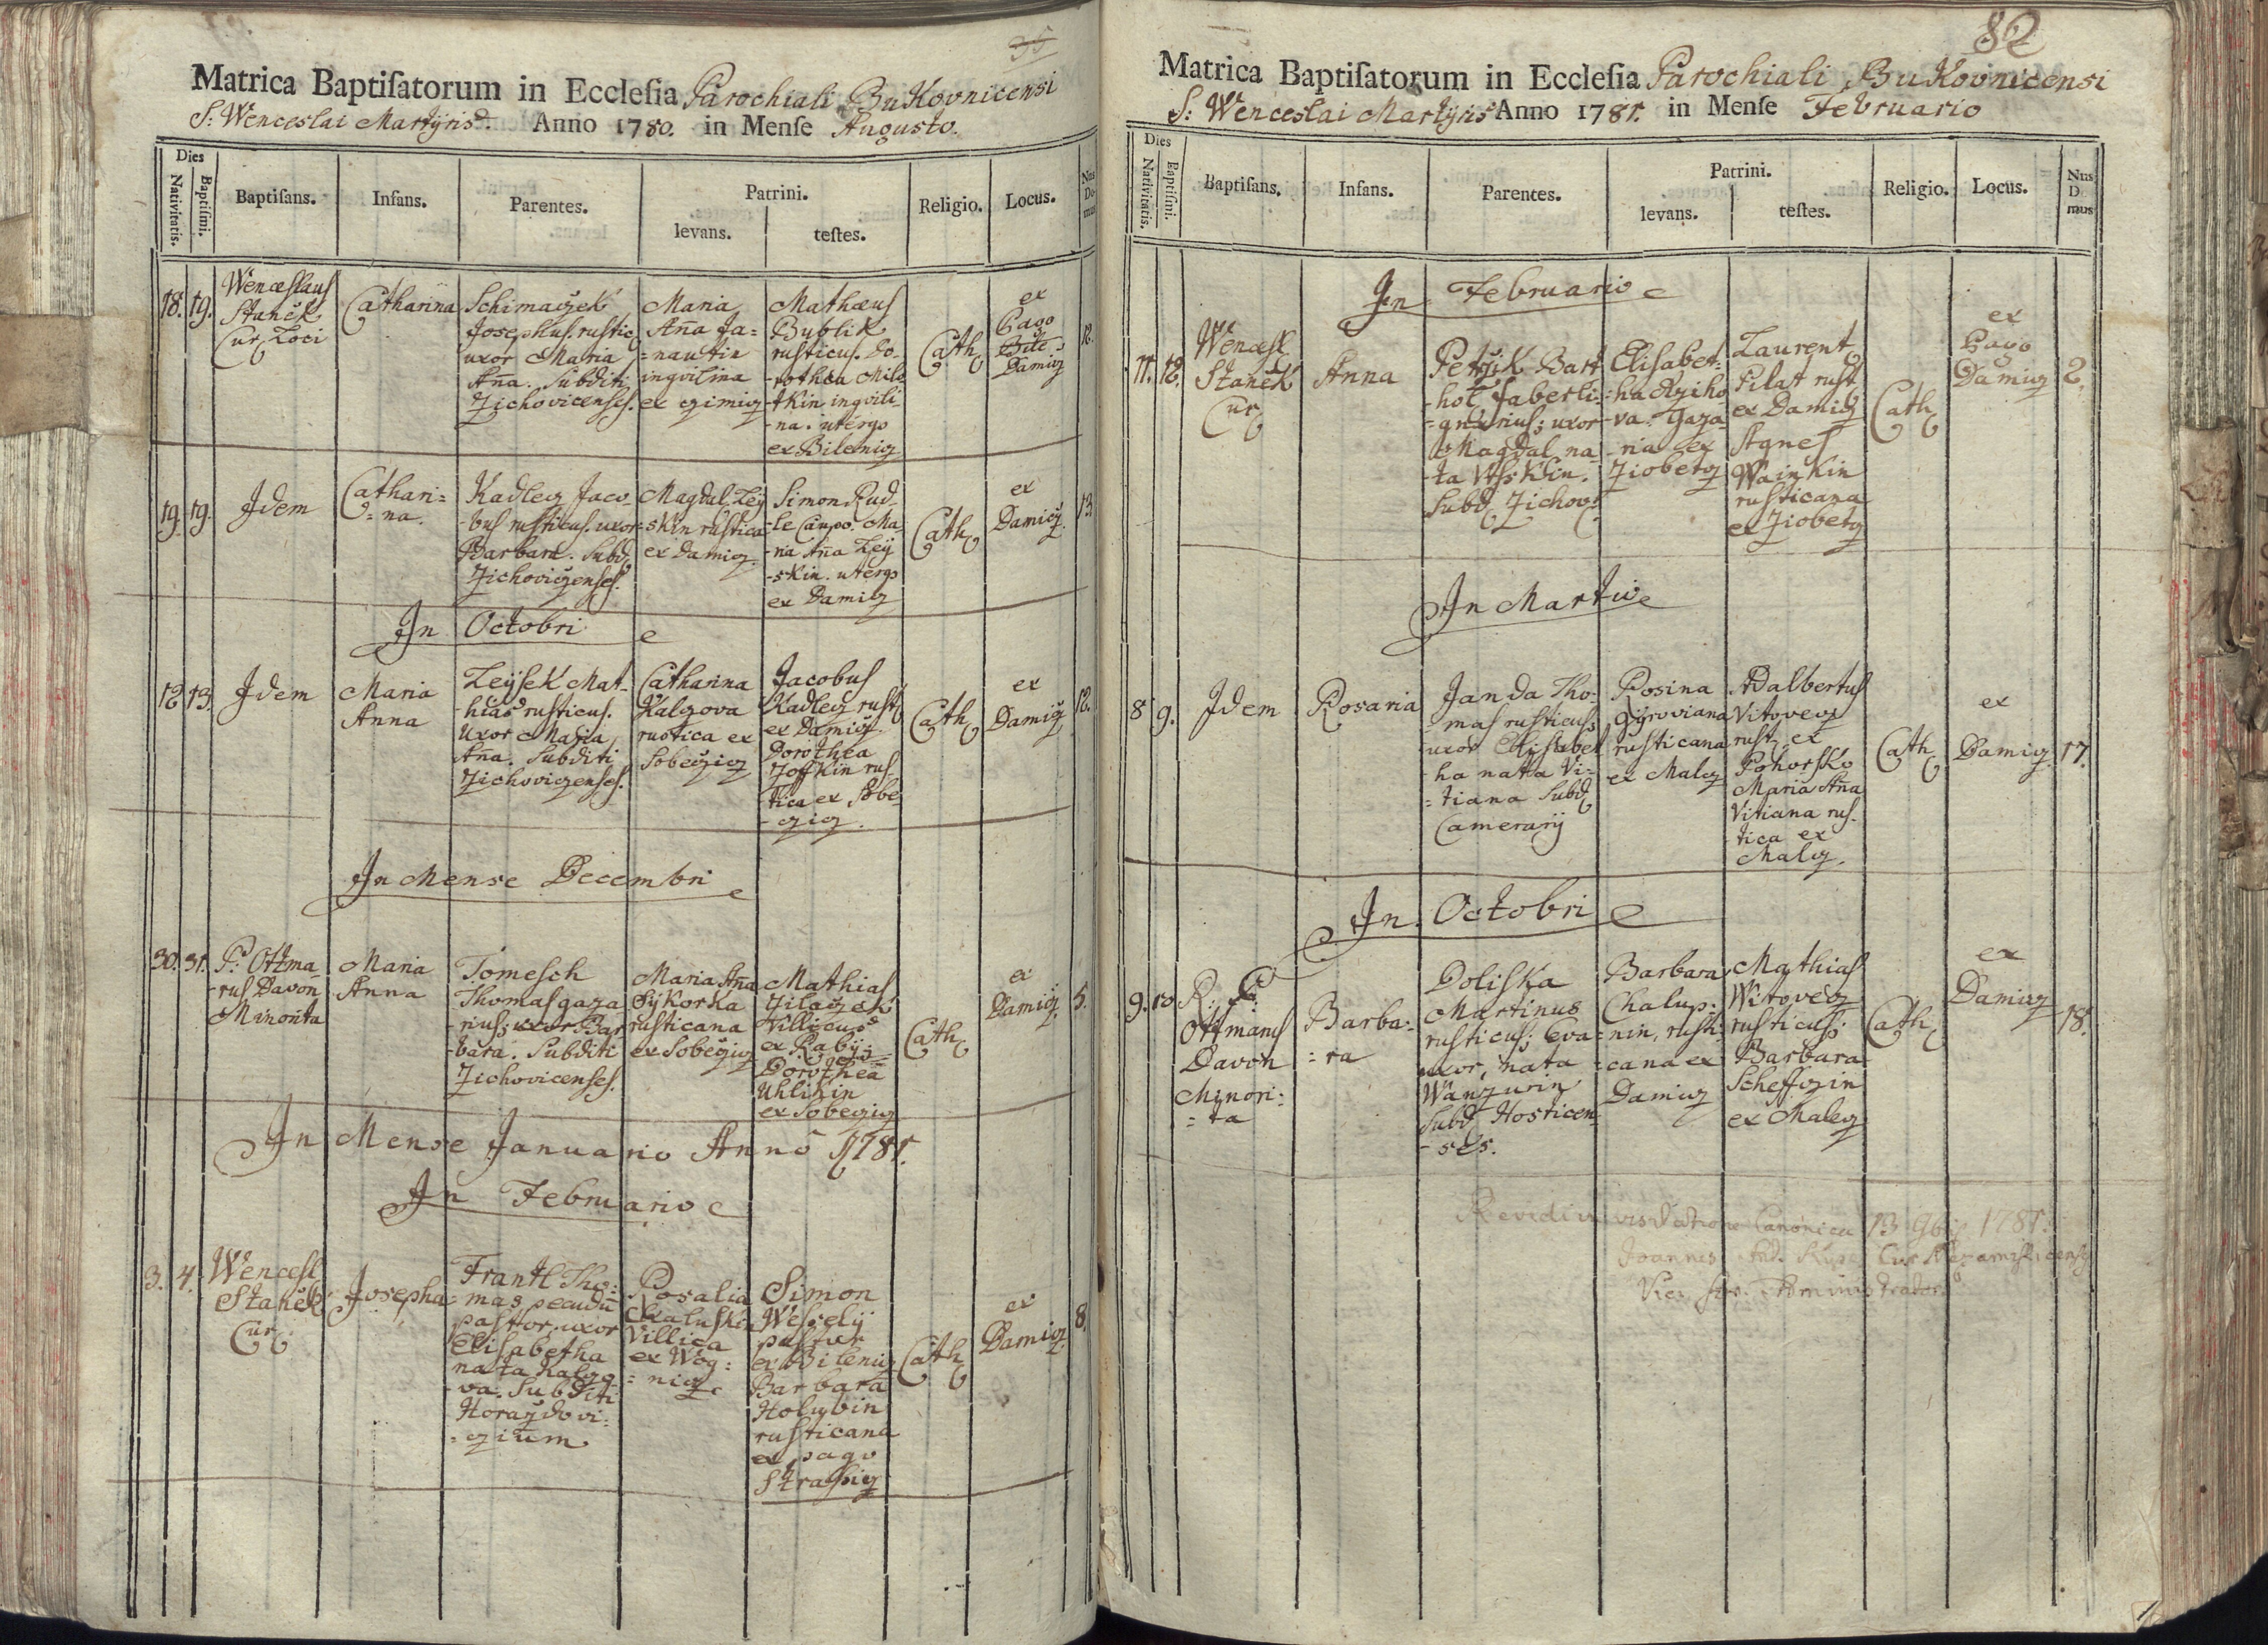 35
Matrica Baptisatorum in Ecclesia Parochiali Bukovnicensi
S: Wenceslai Martyris. Anno 1780. in Mense Augusto.
Dies
Nativitatis.
Baptismi.
Baptisans.
Infans.
Parentes.
Patrini.
levans.
testes.
Religio.
Locus.
Nus Do mus
18. 19.
Wenceslaus
Stanĕk
Cur Loci
Catharina
Schimaczek
Josephus rustic
uxor Maria
Aña. Subditi
Zichovicenses.
Maria
Aña Ja=
=nautin
ingvilina
ex czimicz
Mathæus
Bublik
rusticus. Do-
-rothea
-tkin ingvili-
-na. utergo
ex Bilenicz
Cath
ex
Pago
Bile
Damicz
12.
19. 19.
Idem
Cathari=
=na.
Kadlecz Jaco-
-bus rusticus. uxor
Barbara. Subd
Zichoviczenses.
Magdal Zey
-skin rustica
ex Damicz
Simon Rud-
-le Caupo. Ma-
-na Aña Zey
-skin. utergo
ex Damicz
Cath
ex
Damicz.
13
In Octobri
12 13.
Idem
Maria
Anna
Zeysek Mat-
-hias rusticus.
Uxor Maria
Aña. Subditi
Zichoviczenses.
Catharina
Kalczova
rustica ex
Sobeczicz
Jacobus
Kadlecz rust
ex Damicz.
Dorothea
Joffkin rus-
-tica ex Sobe
-czicz.
Cath
ex
Damicz
12.
In Mense Decembri
30. 31.
P: Ottma-
-rus Davon
Minorita
Maria
Anna
Tomesch
Thomas gaza
-rius; uxor Bar
-bara. Subditi
Zichovicenses.
Maria Aña
Sykorka
rusticana
ex Sobeczicz
Mathias
Zilaczek
Villicus
ex Raby;
Dorothea
Uhlikin
ex Sobeczicz
Cath
ex
Damicz.
5.
In Mense Januario Anno 1781.
In Februario
3. 4.
Wencesl
Stanĕk
Cur
Josepha
Frantl Tho=
mas pecudũ
pastor. uxor
Elisabetha
nata Kalczo
-va. Subditi
Horazdovi=
=czium
Rosalia
Villica
ex Wog=
=nicz
Simon
Wessely
pastor
ex Bilenicz
Barbara
Holubin
rusticana
ex pago
Strassicz
Cath
ex
Damicz.
8.
82
Matrica Baptisatorum in Ecclesia Parochiali Bukovnicensi
S: Wenceslai Martyris Anno 1781. in Mense Februario
Dies
Nativitatis.
Baptismi.
Baptisans.
Infans.
Parentes.
Patrini.
levans.
testes.
Religio.
Locus.
Nus D mus
In Februario
11. 12.
Wencesl
Stanĕk
Cur
Anna
Petržik Bart
-hol faberli=
=gnarius; uxor
Magdal na-
-ta
Subd Zichov:
Elisabet=
=ha Rziho
-va. Gaza-
-ria ex
Ziobetz
Laurent
Pilat rust
ex Damicz
Agnes
Wainkin
rusticana
ex Ziobetz
Cath
ex
Pago
Damicz
2.
In Martio
8 9.
Idem
Rosaria
Janda Tho-
-mas rusticus;
uxor Elisabet
-ha nata Vi=
=tiana Subd
Camerarij
Rosina
rusticana
ex Malcz
Adalbertus
Vitovecz
rust. ex
Pohorsko
Maria Aña
Vitiana rus-
tica ex
Malcz.
Cath
ex
Damicz.
17.
In Octobri
9. 10
R. P.
Ottmarus
Davon
Minori=
=ta
Barba=
=ra
Doliska
Martinus
rusticus; Eva
uxor, nata
Wanzurin
Subd Hosticen-
-ses.
Barbara
Chalup=
=nin, rusti
=cana ex
Damicz
Mathias
Witovecz
rusticus;
Barbara
Scheffczin
ex Malecz
Cath
ex
Damicz
18.
Revidi in visitatione Canonica 13 9bris 1781.
Joannes
Administrator